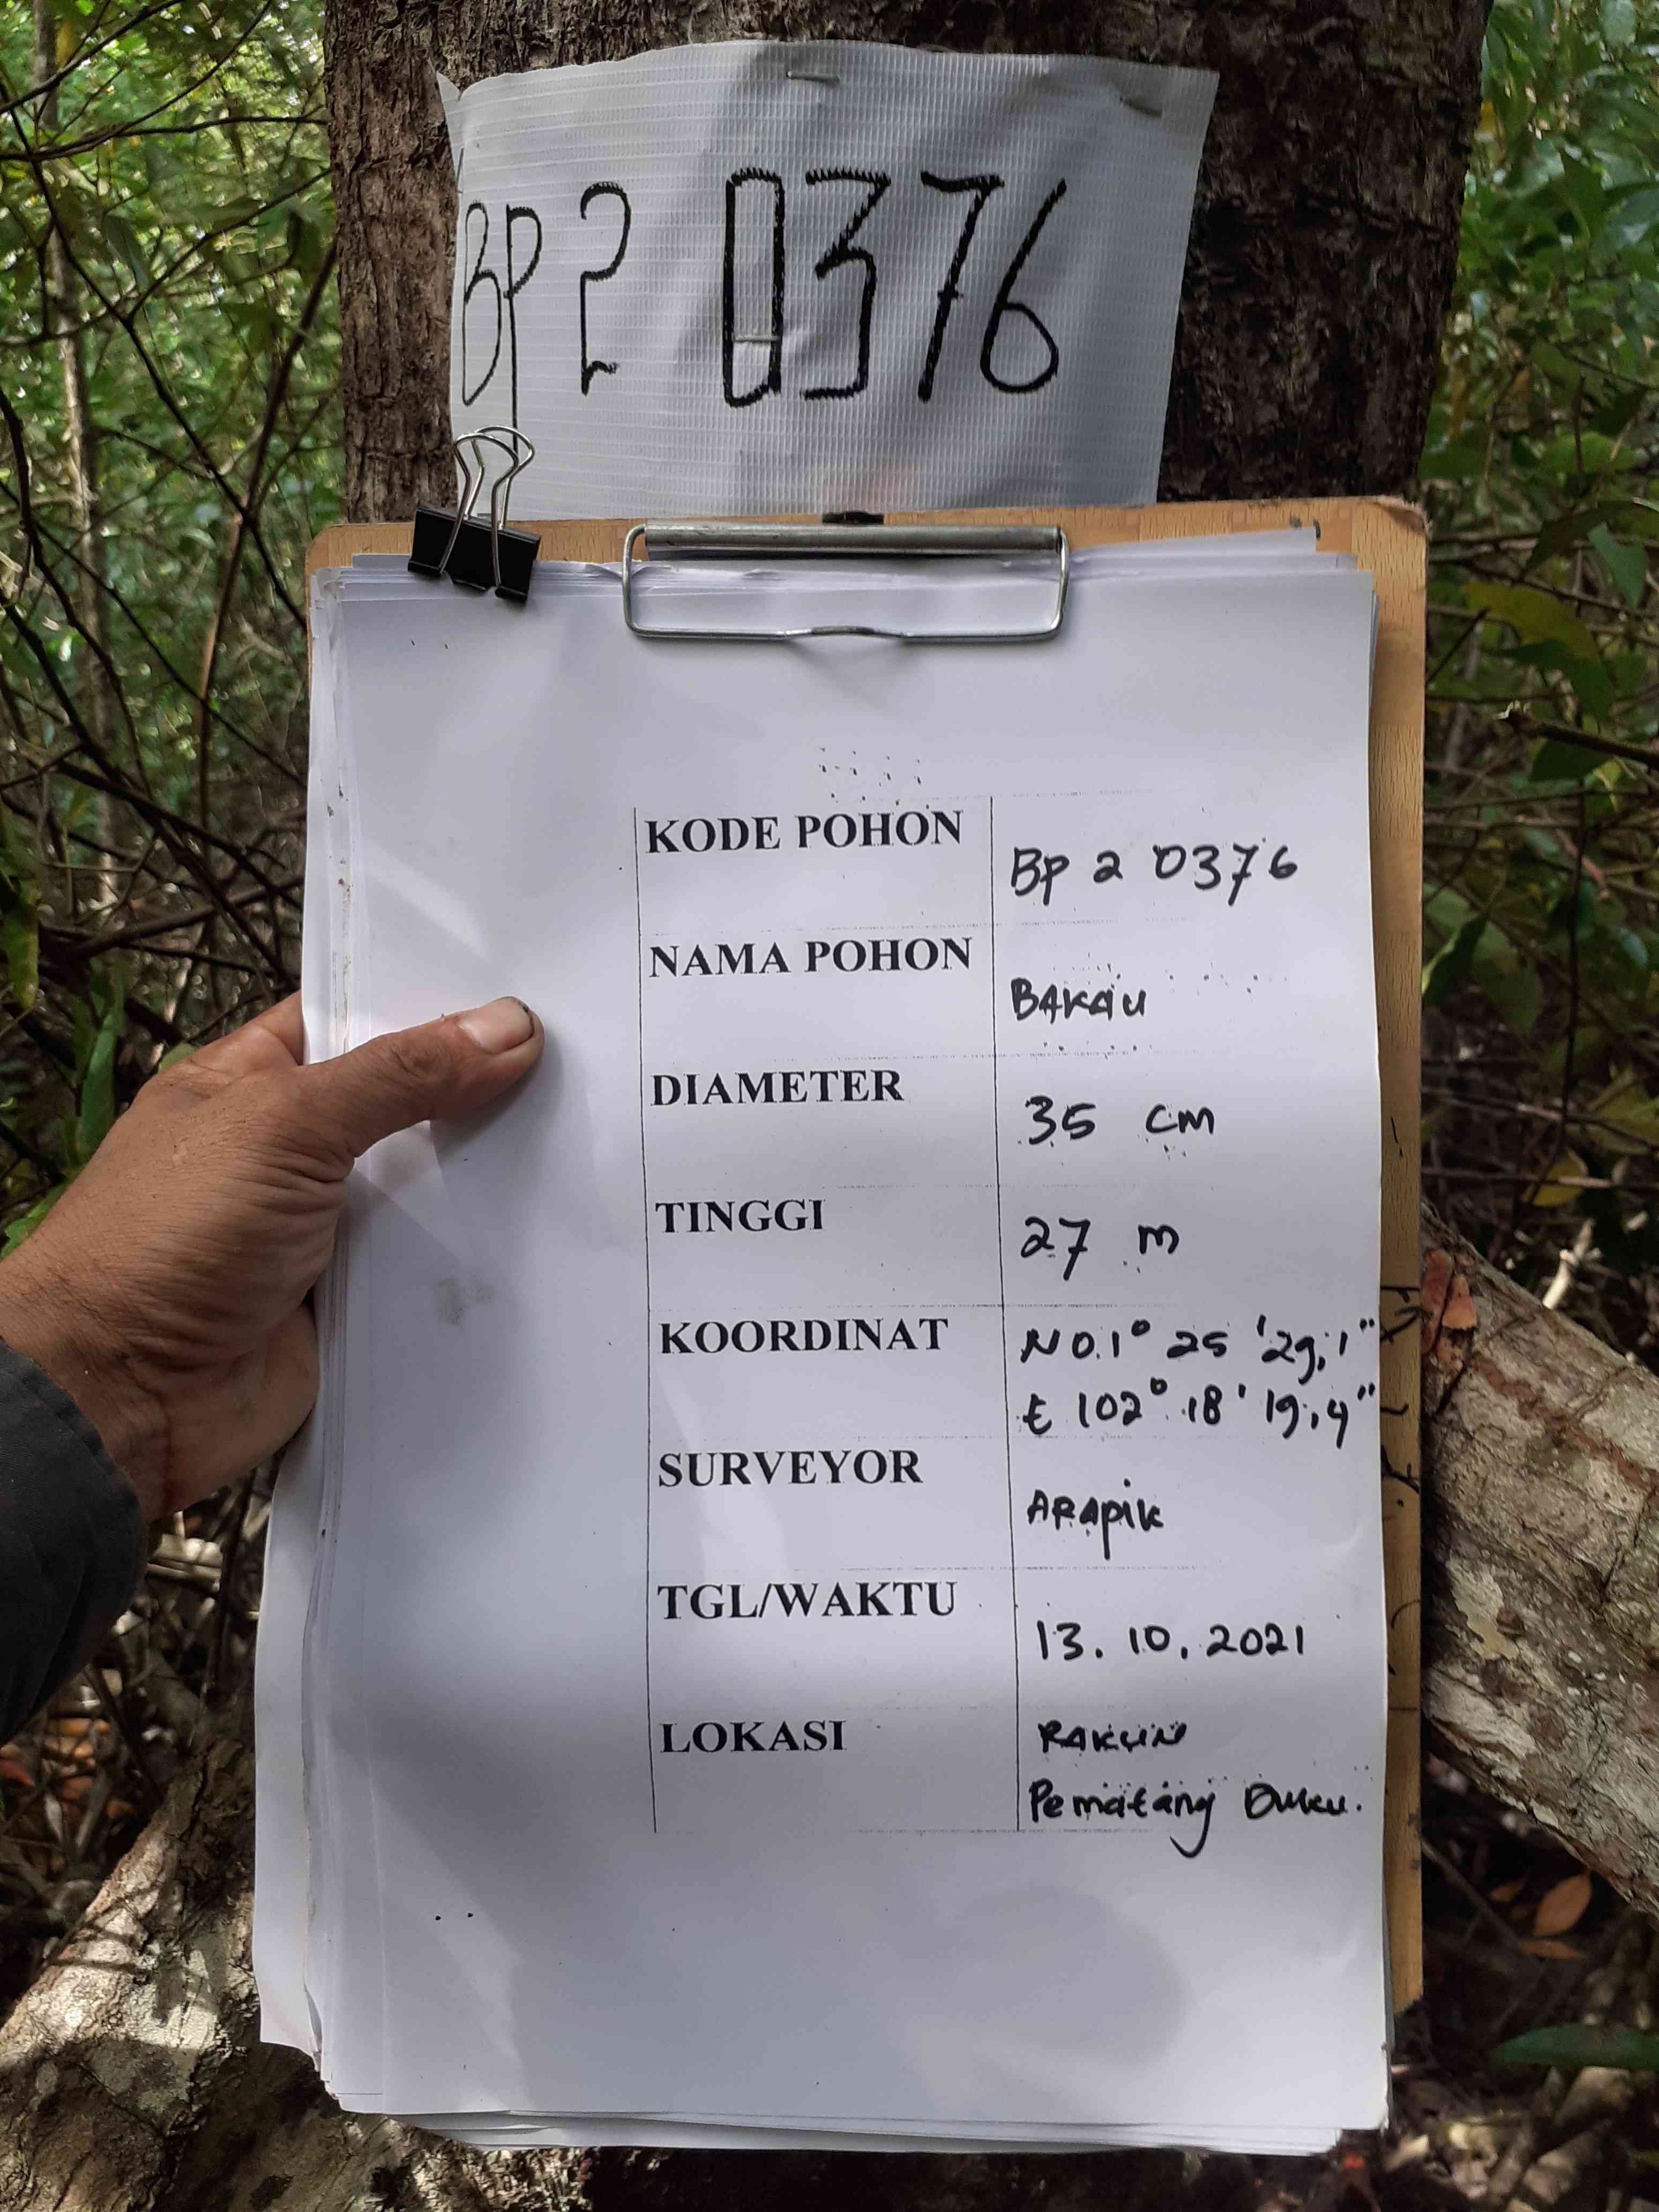 BP 2 0376
KODE POHON
BP 2 0376
NAMA POHON
BAKAU
DIAMETER
35 cm
TINGGI
27 m
KOORDINAT
N 01° 25 '29,1"
E 102° 18' 19,4"
SURVEYOR
ARAPIK
TGL/WAKTU
13. 10. 2021
LOKASI
RAKUN
Pematang Duku.